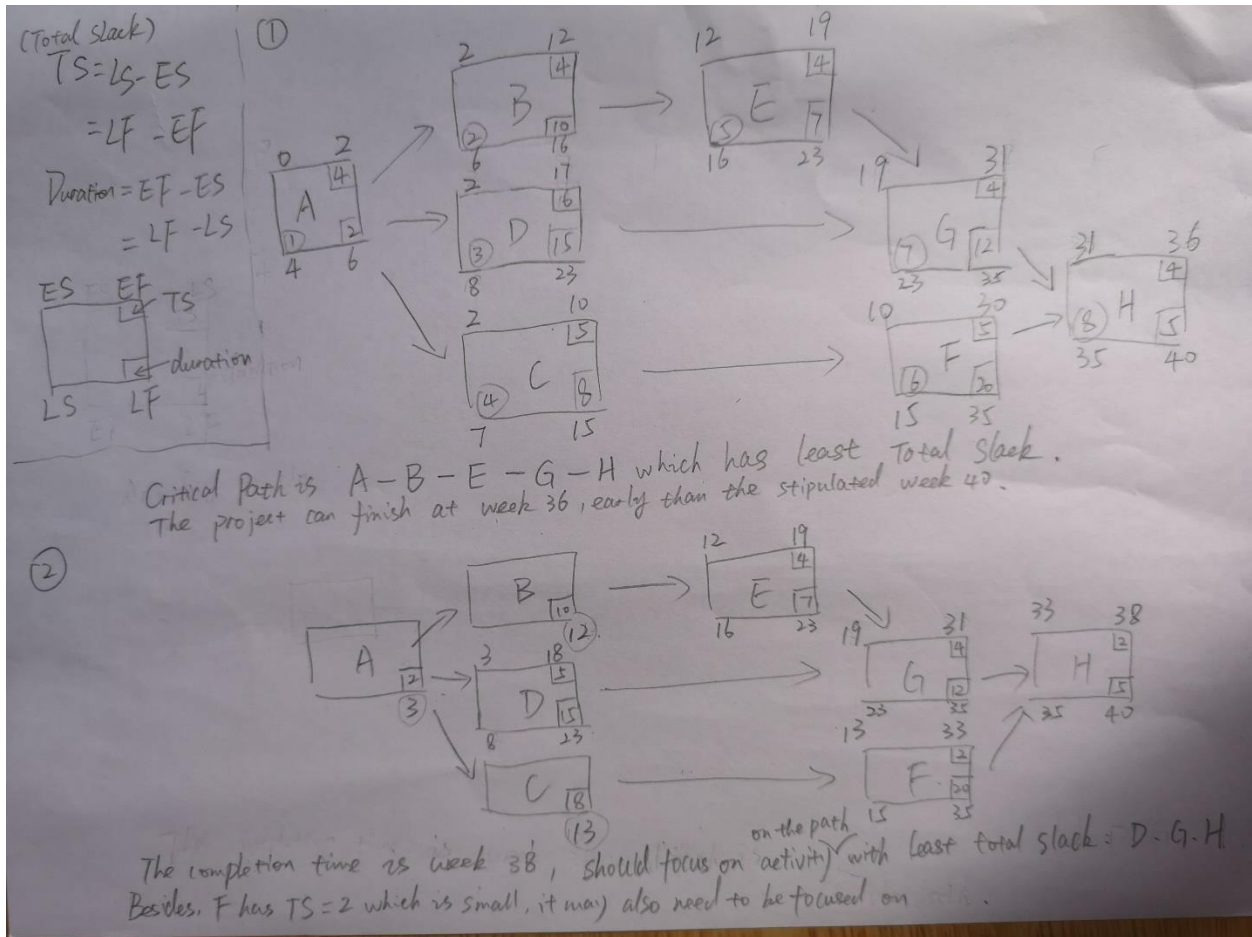 (Total Slack)
TS=LS-ES
=LF-EF
Duration=EF-ES
=LF-LS
ES EF
TS
duration
LS LF
①
0 2
4
A
① 2
4 6
2 12
4
B
② 10
6 16
12 19
4
E
⑤ 7
16 23
2 17
6
D
③ 15
8 23
2 10
5
C
④ 8
7 15
19 31
4
G
⑦ 12
23 35
10 30
5
F
⑥ 20
15 35
31 36
4
H
⑧ 5
35 40
Critical Path is A-B-E-G-H which has least Total Slack.
The project can finish at week 36, early than the stipulated week 40.
②
A
12
③
B
10
⑫
12 19
4
E
7
16 23
3 18
5
D
15
8 23
C
8
⑬
19 31
4
G
12
23 35
13 33
2
F
20
15 35
33 38
2
H
5
35 40
on the path
The completion time is week 38, should focus on activity with least total slack: D-G-H
Besides, F has TS=2 which is small, it may also need to be focused on .